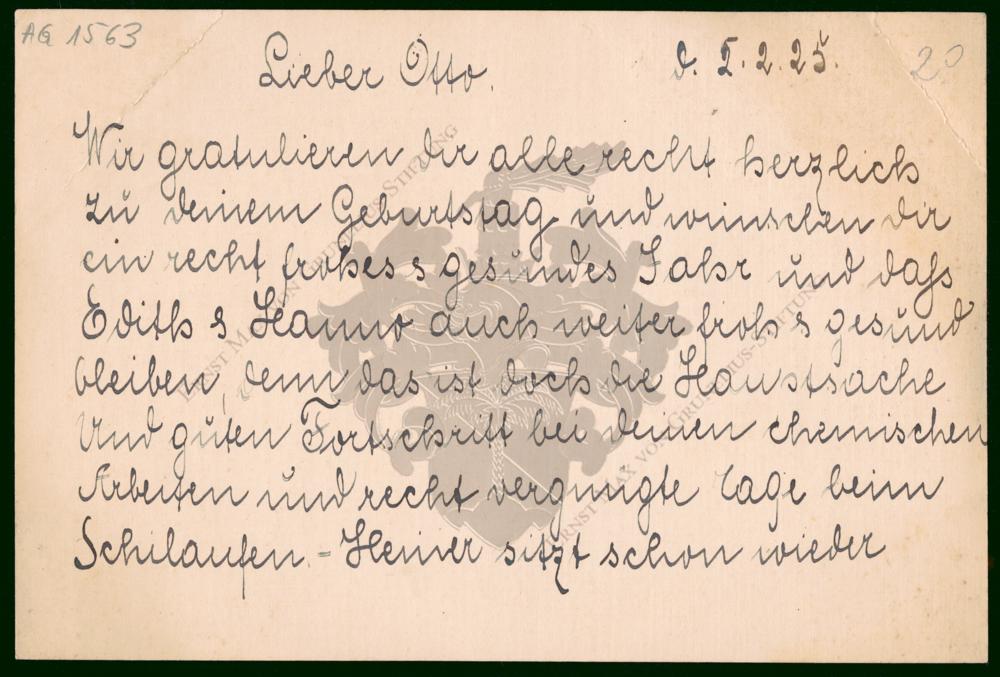 AG 1563
Lieber Otto. d. 5.2.25. 20
Wir gratulieren dir alle recht herzlich
zu deinem Geburtstag und wünschen dir
ein recht frohes & gesundes Jahr und daß
Edith & Hanno auch weiter froh & gesund
bleiben, denn das ist doch die Hauptsache
Und guten Fortschritt bei deinen chemischen
Arbeiten und recht vergnügte Tage beim
Schilaufen. - Heiner sitzt schon wieder
ERNST MAX VON GRUNELIUS-STIFTUNG
ERNST MAX VON GRUNELIUS-STIFTUNG